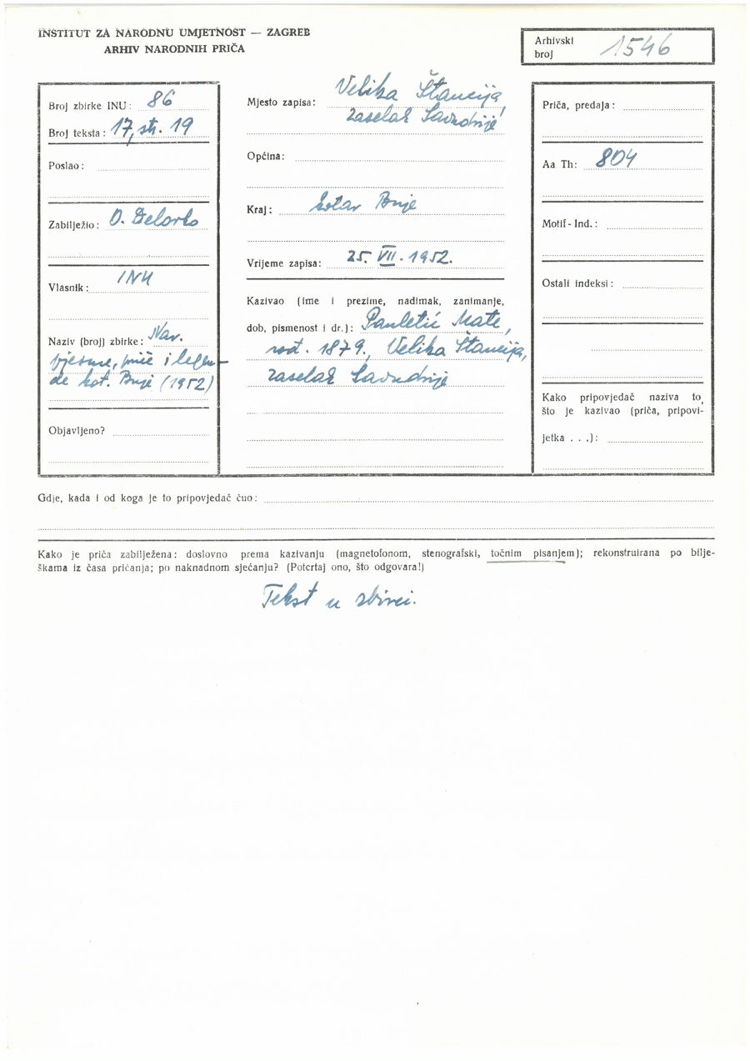 INSTITUT ZA NARODNU UMJETNOST — ZAGREB
ARHIV NARODNIH PRIČA
Arhivski
broj 1546
Broj zbirke INU: 86
Broj teksta: 17, str. 19
Poslao:
Zabilježio: O. Delorko
Vlasnik: INU
Naziv (broj) zbirke: Nar.
pjesme, priče i legen-
de kot. Buje (1952)
Objavljeno?
Mjesto zapisa: Velika Štancija,
zaselak Savudrije
Općina:
Kraj: kotar Buje
Vrijeme zapisa: 25. VII. 1952.
Kazivao (ime i prezime, nadimak, zanimanje,
dob, pismenost i dr.): Pauletić Mate,
rođ. 1879., Velika Štancija,
zaselak Savudrije
Priča, predaja:
Aa Th: 804
Motif-Ind.:
Ostali indeksi:
Kako pripovjedač naziva to,
što je kazivao (priča, pripovi-
jetka . . .):
Gdje, kada i od koga je to pripovjedač čuo:
Kako je priča zabilježena: doslovno prema kazivanju (magnetofonom, stenografski, točnim pisanjem); rekonstruirana po bilje-
škama iz časa pričanja; po naknadnom sjećanju? (Potcrtaj ono, što odgovara!)
Tekst u zbirci.